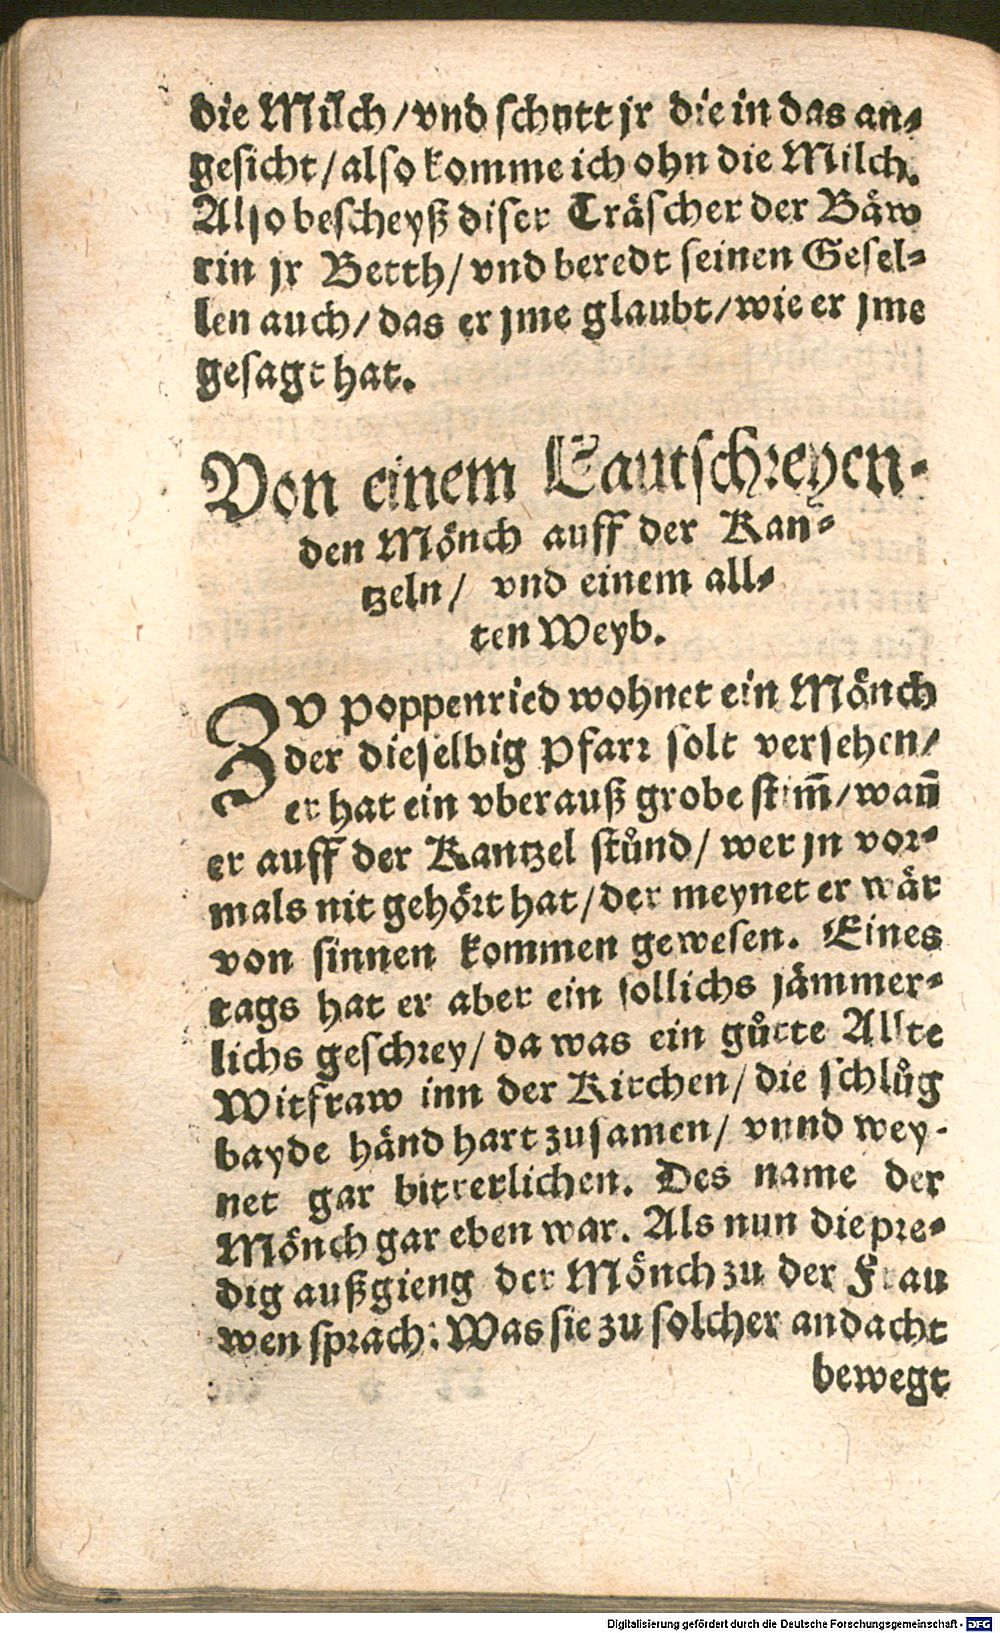 die Milch / vnd schutt jr die in das an⸗
gesicht / also komme ich ohn die Milch.
Also bescheyß diser Träscher der Bäw
rin jr Betth / vnd beredt seinen Gesel⸗
len auch / das er jme glaubt / wie er jme
gesagt hat.
Von einem Lautschreyen⸗
den Mönch auff der Kan⸗
tzeln / vnd einem all⸗
ten Weyb.
ZV Poppenried wohnet ein Mönch
der dieselbig Pfarr solt versehen /
er hat ein vberauß grobe stim̄ / wan̄
er auff der Kantzel stůnd / wer jn vor⸗
mals nit gehört hat / der meynet er wär
von sinnen kommen gewesen. Eines
tags hat er aber ein sollichs jämmer⸗
lichs geschrey / da was ein gůtte Allte
Witfraw inn der Kirchen / die schlůg
bayde händ hart zusamen / vnnd wey⸗
net gar bitterlichen. Des name der
Mönch gar eben war. Als nun die pre⸗
dig außgieng der Mönch zu der Frau
wen sprach: Was sie zu solcher andacht
bewegt
Digitalisierung gefördert durch die Deutsche Forschungsgemeinschaft - DFG